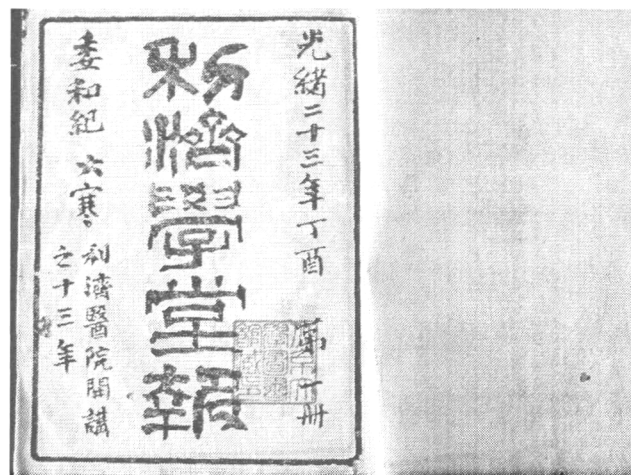 光緒二十三年丁酉 第一册
利濟學堂報
委和紀 大寒
利濟醫院開講
之十三年